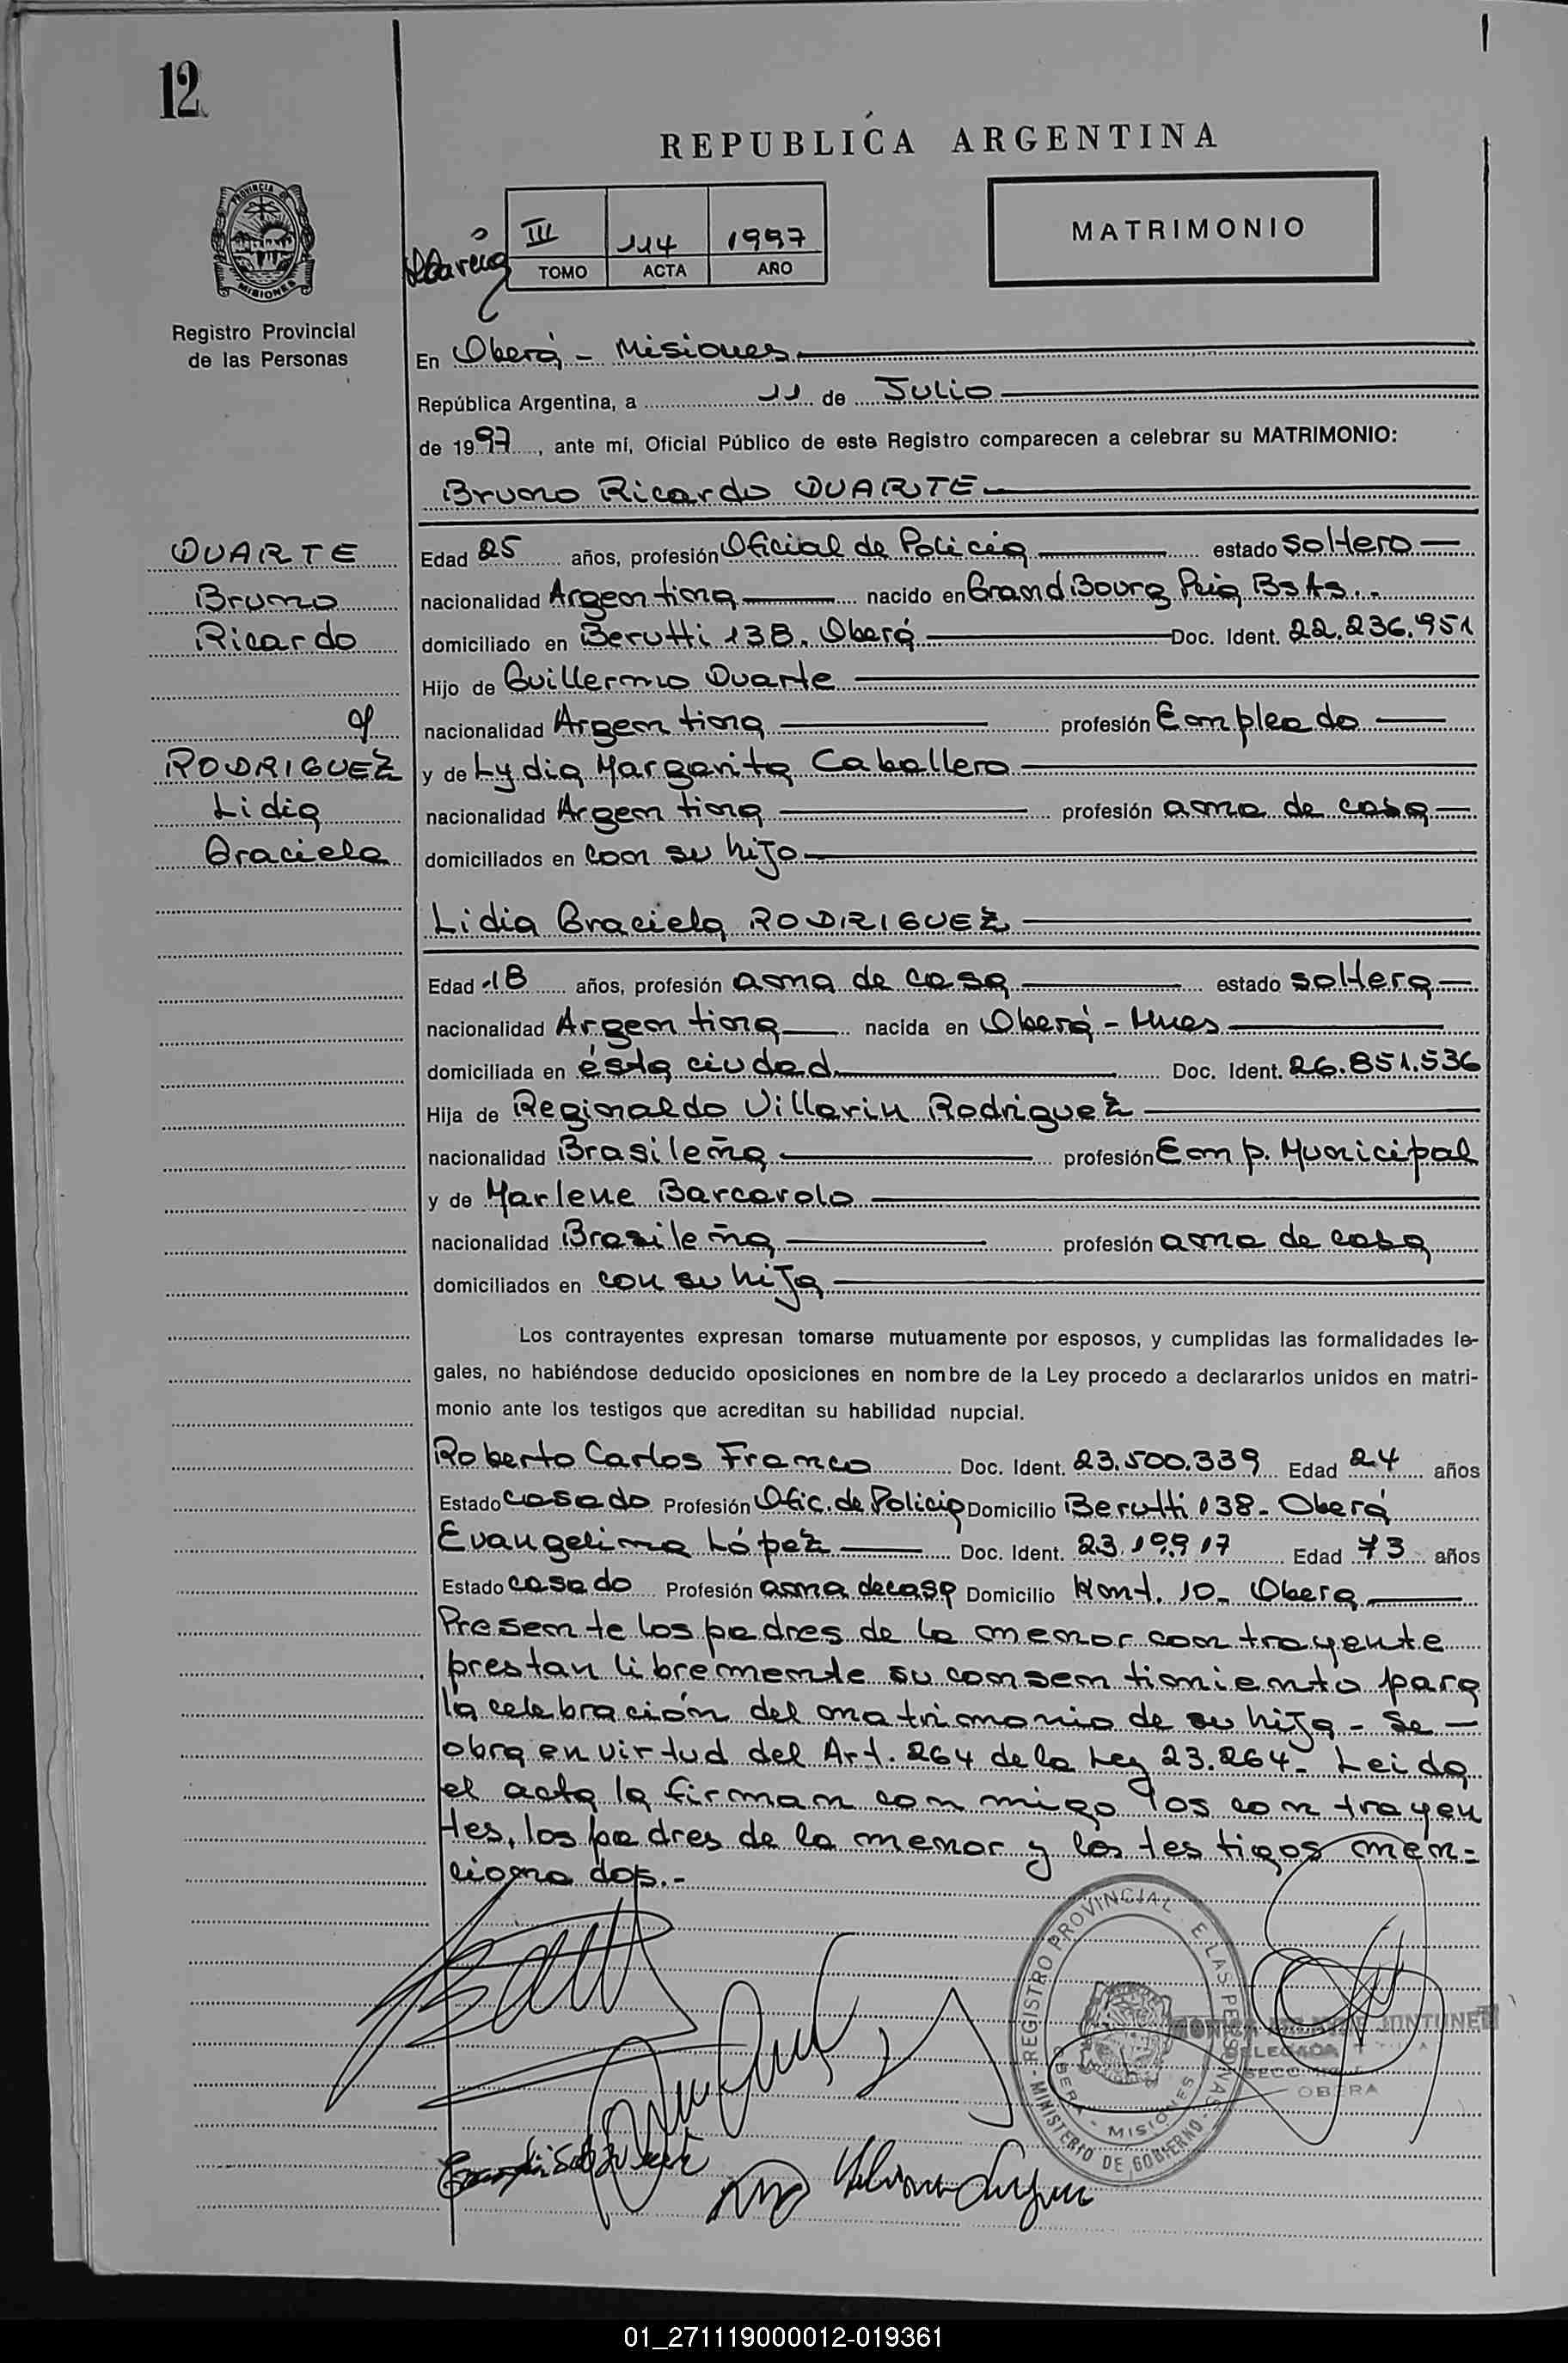 12
REPUBLICA ARGENTINA
PROVINCIA DE
MISIONES
Registro Provincial
de las Personas
III 114 1997
TOMO ACTA AÑO
MATRIMONIO
En Oberá - Misiones
República Argentina, a 11 de Julio
de 1997, ante mí, Oficial Público de este Registro comparecen a celebrar su MATRIMONIO:
Bruno Ricardo DUARTE
DUARTE
Bruno
Ricardo
RODRIGUEZ
Lidia
Graciela
Edad 25 años, profesión Oficial de Policia estado soltero
nacionalidad Argentina nacido en Grand Bourg Pcia Bs As.
domiciliado en Berutti 138. Oberá Doc. Ident. 22.236.951
Hijo de Guillermo Duarte
nacionalidad Argentina profesión Empleado
y de Lydia Margarita Caballero
nacionalidad Argentina profesión ama de casa
domiciliados en con su hijo
Lidia Graciela RODRIGUEZ
Edad 18 años, profesión ama de casa estado soltera
nacionalidad Argentina nacida en Oberá - Mnes
domiciliada en ésta ciudad Doc. Ident. 26.851.536
Hija de Reginaldo Villarin Rodriguez
nacionalidad Brasileña profesión Emp. Municipal
y de Marlene Barcarolo
nacionalidad Brasileña profesión ama de casa
domiciliados en con su hija
Los contrayentes expresan tomarse mutuamente por esposos, y cumplidas las formalidades le-
gales, no habiéndose deducido oposiciones en nombre de la Ley procedo a declararlos unidos en matri-
monio ante los testigos que acreditan su habilidad nupcial.
Roberto Carlos Franco Doc. Ident. 23.500.339 Edad 24 años
Estado casado Profesión Ofic. de Policia Domicilio Berutti 138 - Oberá
Evangelina López Doc. Ident. Edad años
Estado casado Profesión ama de casa Domicilio 10 - Obera
Presente los padres de la menor contrayente
prestan libremente su consentimiento para
la celebración del matrimonio de su hija - Se -
obra en virtud del Art. 264 de la Ley 23.264 - Leida
el acta la firman conmigo los contrayen
tes, los padres de la menor y los testigos men-
cionados.-
REGISTRO PROVINCIAL E LAS PERSONAS
MINISTERIO DE GOBIERNO
OBERA - MISIONES
DELEGADA
OBERA
01_271119000012-019361